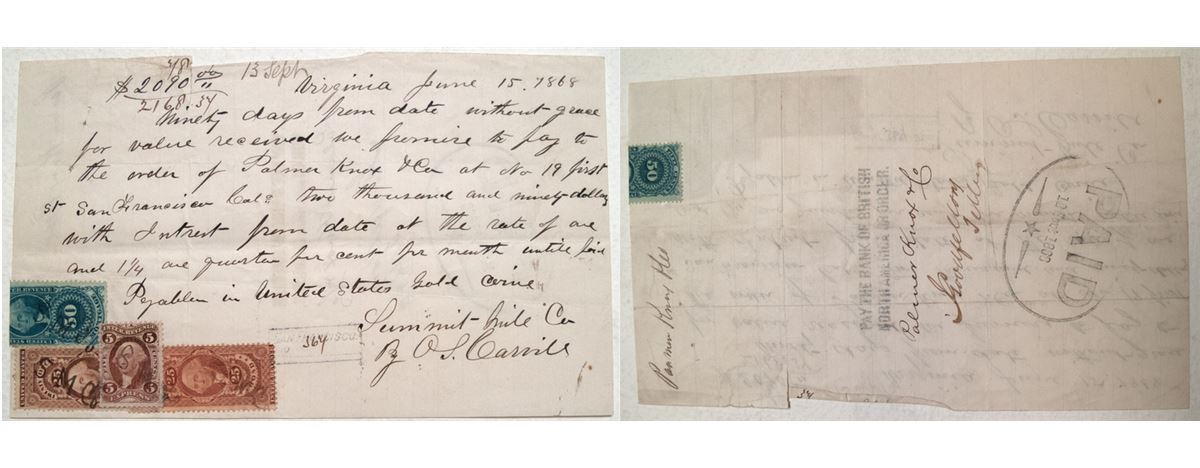 78
$ 2090 00/11
13 Sept
2168.34
Virginia June 15. 1868
Ninety days from date without grace
for value received we promise to pay to
the order of Palmer Knox & Co at No 19 first
st San Francisco Cal² two thousand and ninety dollars
with Intrest from date at the rate of one
and 1¼ one quarter per cent per month untill paid
Payable in United States Gold coine
Summit Mill Co
By O. S. Carvill
364
50
25
5
5
EXPRESS
25
25
50
Palmer Knox & Co
PAY THE BANK OF BRITISH
NORTH AMERICA OR ORDER.
Palmer Knox & Co
Goodfellow
Teller
PAID